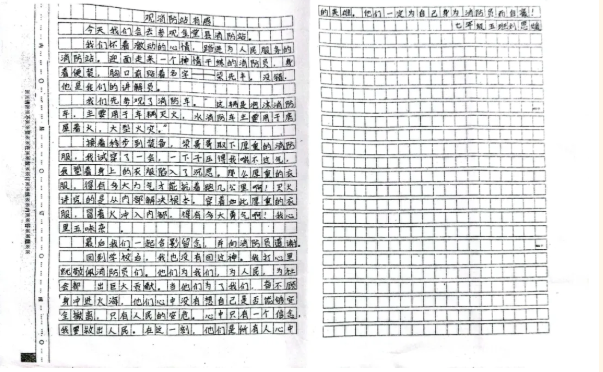 观消防站有感
今天我们去参观宜君县消防站。
我们怀着激动的心情，踏进为人民服务的
消防站。迎面走来一个神情干练的消防员，身
着便装，胸口前绣着名字——梁光年。没错，
他是我们的讲解员。
我们先参观了消防车。“这辆是泡沫消防
车，主要用于车辆灭火，水消防车主要用于房
屋着火，大型火灾。”
接着转步到装备，梁哥哥取下厚重的消防
服，我试穿了一会，一下子压得我喘不过气，
我望着身上的衣服陷入了沉思。那么厚重的衣
服，得有多大力气才能抗着跑几公里啊！灭火
讲究的是从内部解决根本，穿着如此厚重的衣
服，冒着火冲入内部，得有多大勇气啊！我心
里五味杂
最后我们一起合影留念，并向消防员道谢
回到学校后，我也没有回过神。我打心里
就敬佩消防员们。他们为我们，为人民，为社
会都 出巨大贡献。当他们为了我们，奋不顾
身冲进火海，他们心中没有想自己是否能够安
全撤离，只有人民的安危。心中只有一个信念，
我要救出人民。在这一刻，他们是所有人心中
的英雄。他们一定为自己身为消防员而自豪！
七年级五班 思